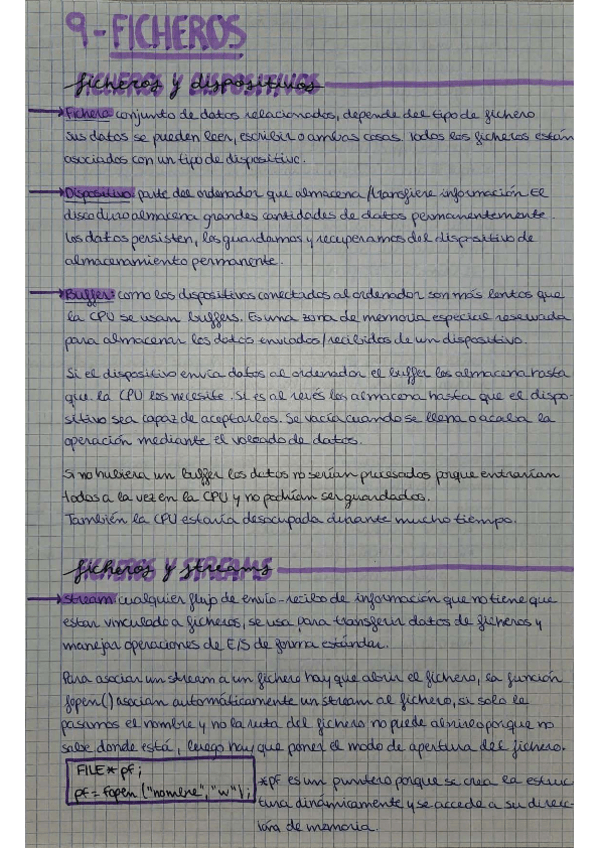 9-FICHEROS
ficheros y dispositivos
→Fichero: conjunto de datos relacionados, depende del tipo de fichero
sus datos se pueden leer, escribir o ambas cosas. Todos los ficheros están
asociados con un tipo de dispositivo.
→Dispositivo: parte del ordenador que almacena/transfiere información. El
disco duro almacena grandes cantidades de datos permanentemente.
Los datos persisten, los guardamos y recuperamos del dispositivo de
almacenamiento permanente.
→Buffer: como los dispositivos conectados al ordenador son más lentos que
la CPU se usan buffers. Es una zona de memoria especial reservada
para almacenar los datos enviados/recibidos de un dispositivo.
Si el dispositivo envía datos al ordenador el buffer los almacena hasta
que la CPU los necesite. Si es al revés los almacena hasta que el dispo-
sitivo sea capaz de aceptarlos. Se vacía cuando se llena o acaba la
operación mediante el volcado de datos.
Si no hubiera un buffer los datos no serían procesados porque entrarían
todos a la vez en la CPU y no podrían ser guardados.
También la CPU estaría desocupada durante mucho tiempo.
ficheros y streams
→Stream: cualquier flujo de envío-recibo de información que no tiene que
estar vinculado a ficheros, se usa para transferir datos de ficheros y
manejar operaciones de E/S de forma estándar.
Para asociar un stream a un fichero hay que abrir el fichero, la función
fopen() asocian automáticamente un stream al fichero, si solo le
pasamos el nombre y no la ruta del fichero no puede abrirlo porque no
sabe donde está, luego hay que poner el modo de apertura del fichero.
FILE* pf;
pf = fopen ("nombre","w");
*pf es un puntero porque se crea la estruc-
tura dinámicamente y se accede a su direc-
ión de memoria.